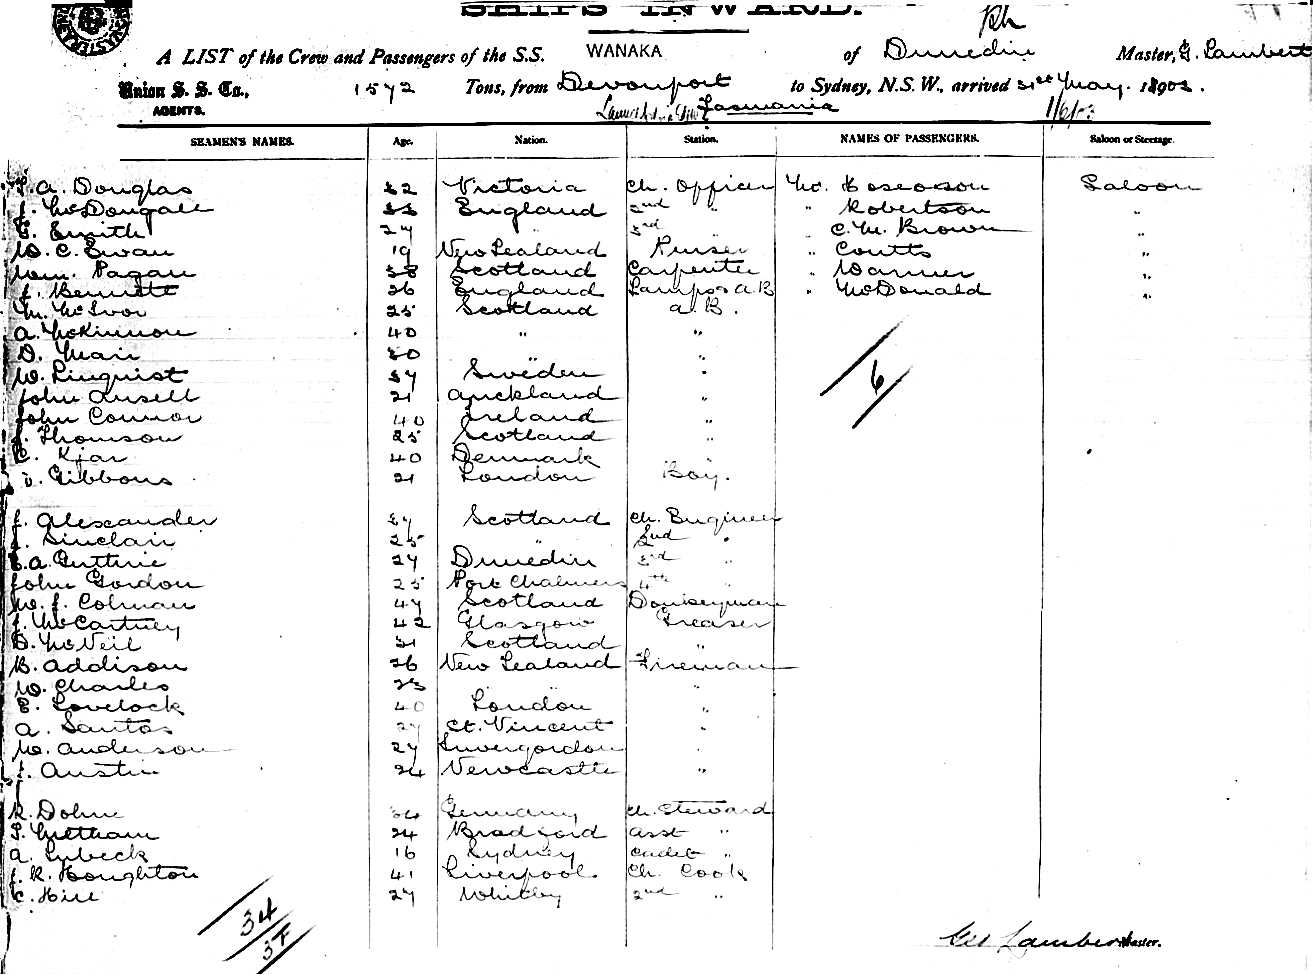 SHIPS INWARD.
A LIST of the Crew and Passengers of the S.S. WANAKA of Dunedin Master, G. Lambert
Union S. S. Co., AGENTS. 1572 Tons, from Devonport to Sydney, N.S.W., arrived 31st May. 1903.
Tasmania 1/6/03
SEAMEN'S NAMES. Age. Nation. Station. NAMES OF PASSENGERS. Saloon or Steerage.
A. Douglas 32 Victoria Ch. Officer Mr. Saloon
J. McDougall 33 England 2nd " " Robertson "
E. Smith 27 " 3rd " C. M. Brown "
W. C. Ewan 19 New Zealand Purser " Coutts "
Wm. Pagan 38 Scotland Carpenter " Warner "
J. Bennett 26 England Lamps & A.B " McDonald "
M. McIvor 25 Scotland A.B.
A. McKinnon 40 " "
D. Mair 30 "
W. Linquist 37 Sweden "
John Ansell 21 Auckland "
John Connor 40 Ireland "
J. Thomson 25 Scotland "
C. Kjar 40 Denmark
Gibbons 21 London Boy.
6
J. Alexander 37 Scotland Ch. Engineer
J. Sinclair 25 " 2nd "
A. Guthrie 27 Dunedin 3rd "
John Gordon 25 Port Chalmers 4th "
W. J. Colman 47 Scotland Donkeyman
J. McCartney 42 Glasgow Greaser
D. McNeil 31 Scotland "
B. Addison 26 New Zealand Fireman
W. Charles 23 " "
E. Lovelock 40 London "
A. Santos 27 St. Vincent "
W. Anderson 27 Invergordon "
J. Austin 24 Newcastle "
R. Dohne 34 Germany Ch. Steward
Meetham 24 Bradford Asst "
A. Lubeck 16 Sydney Cadet "
J. R. Houghton 41 Liverpool Ch. Cook
C. Hill 27 Whitby 2nd "
34
Geo Lambert Master.